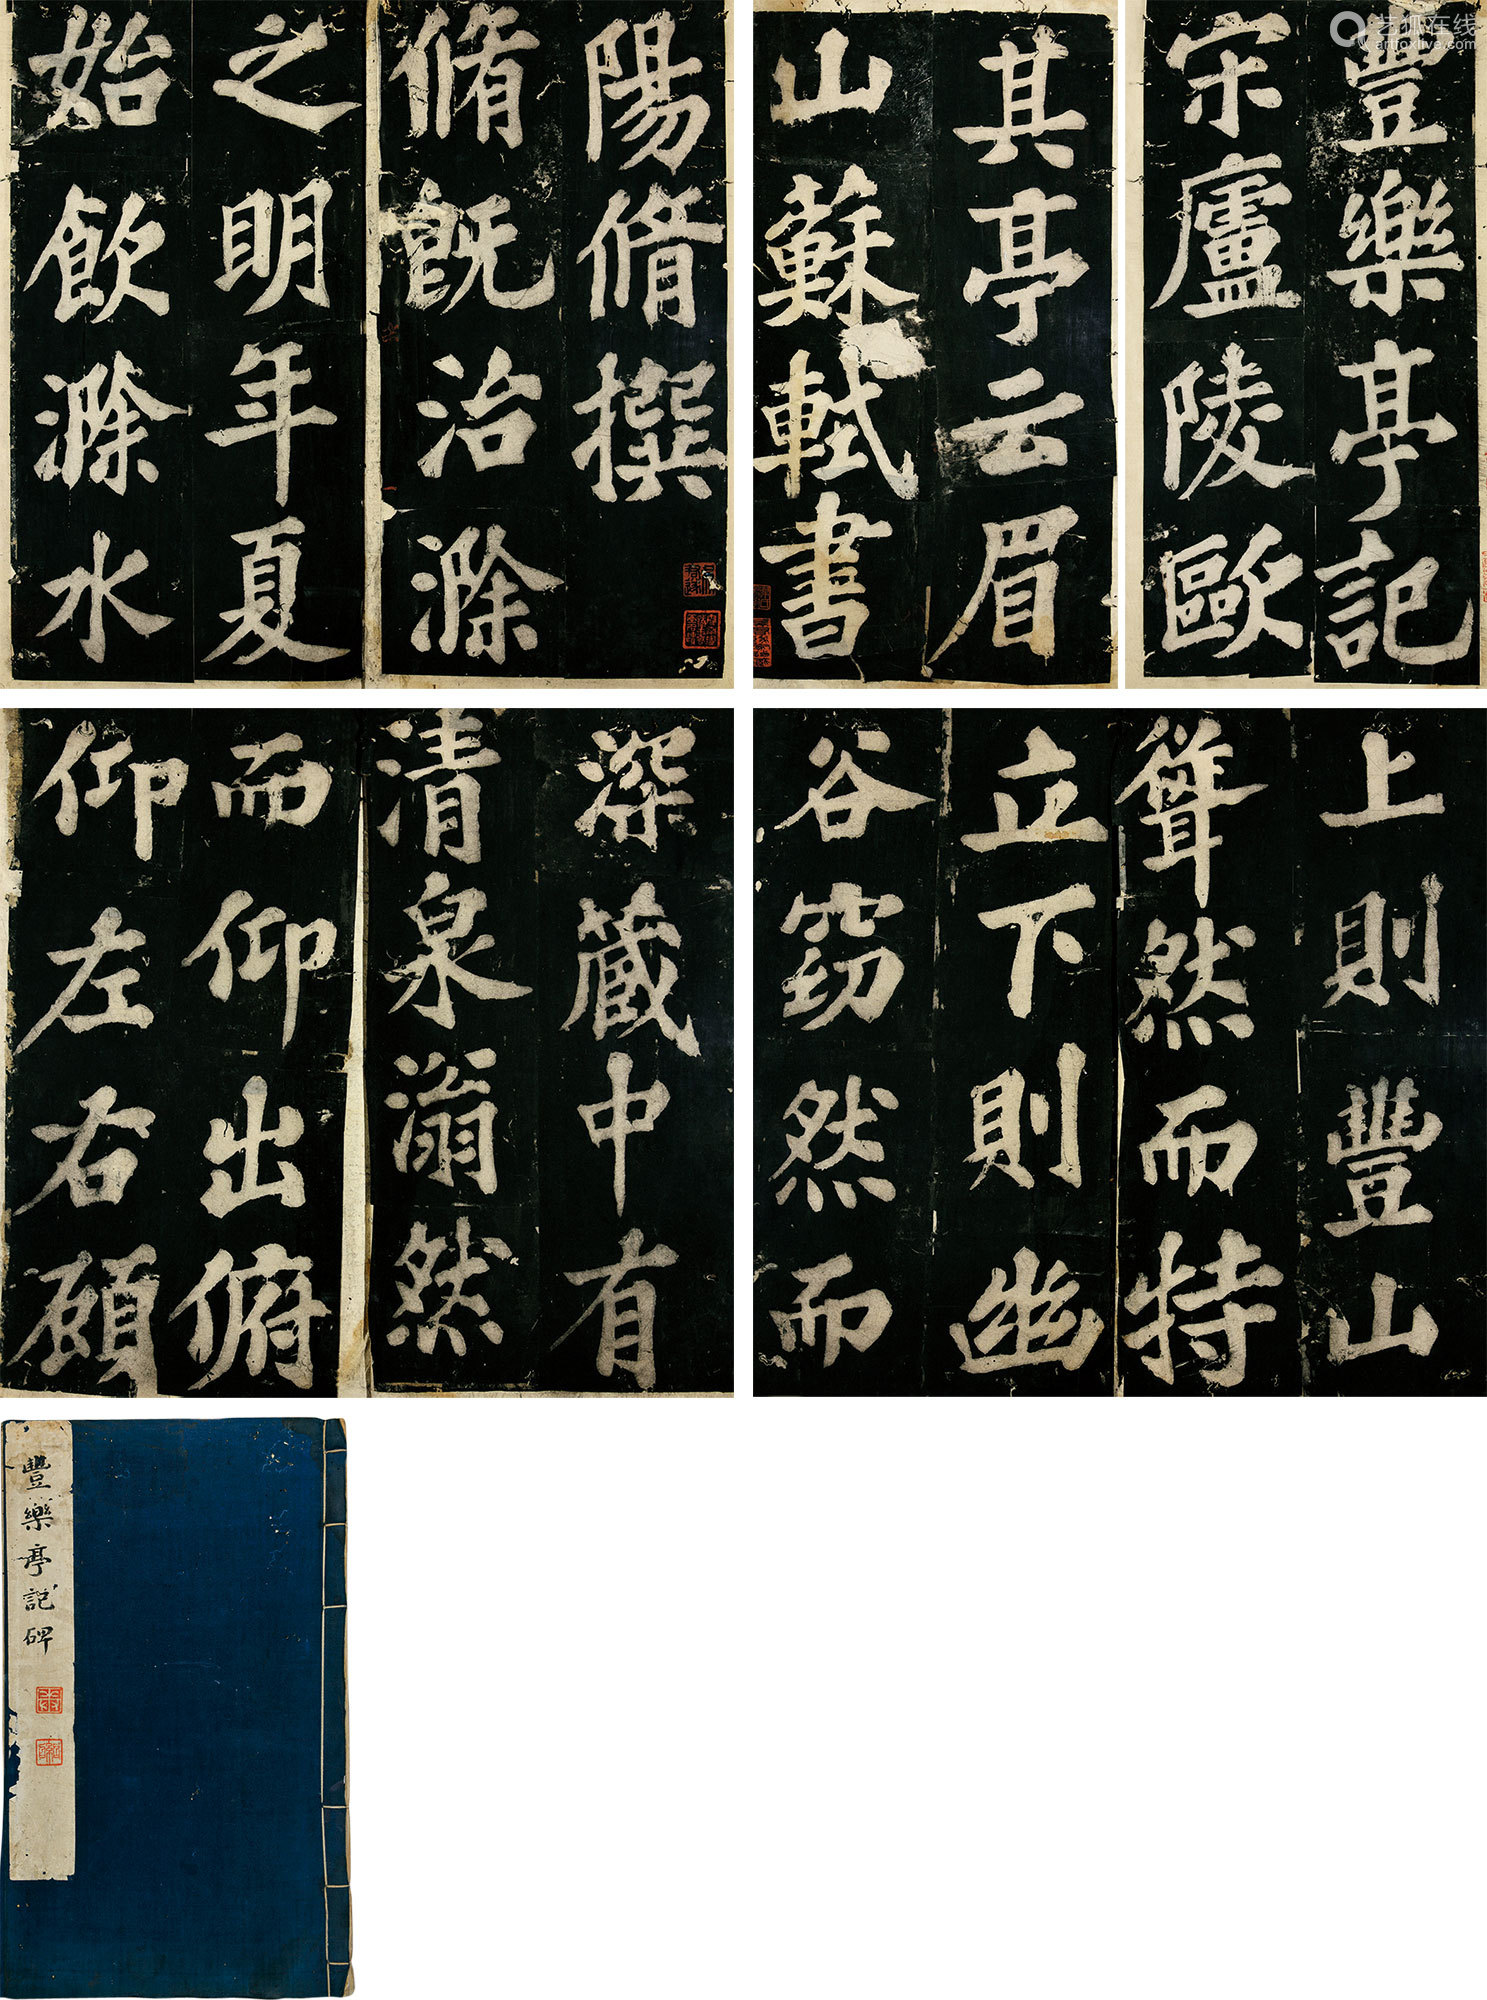 豐樂亭記
宋廬陵歐
陽脩撰
脩既治滁
之明年夏
始飲滁水
其亭云眉
山蘇軾書
上則豐山
聳然而特
立下則幽
谷窈然而
深藏中有
清泉滃然
而仰出俯
仰左右顧
豐樂亭記碑
艺狐在线
artfoxlive.com